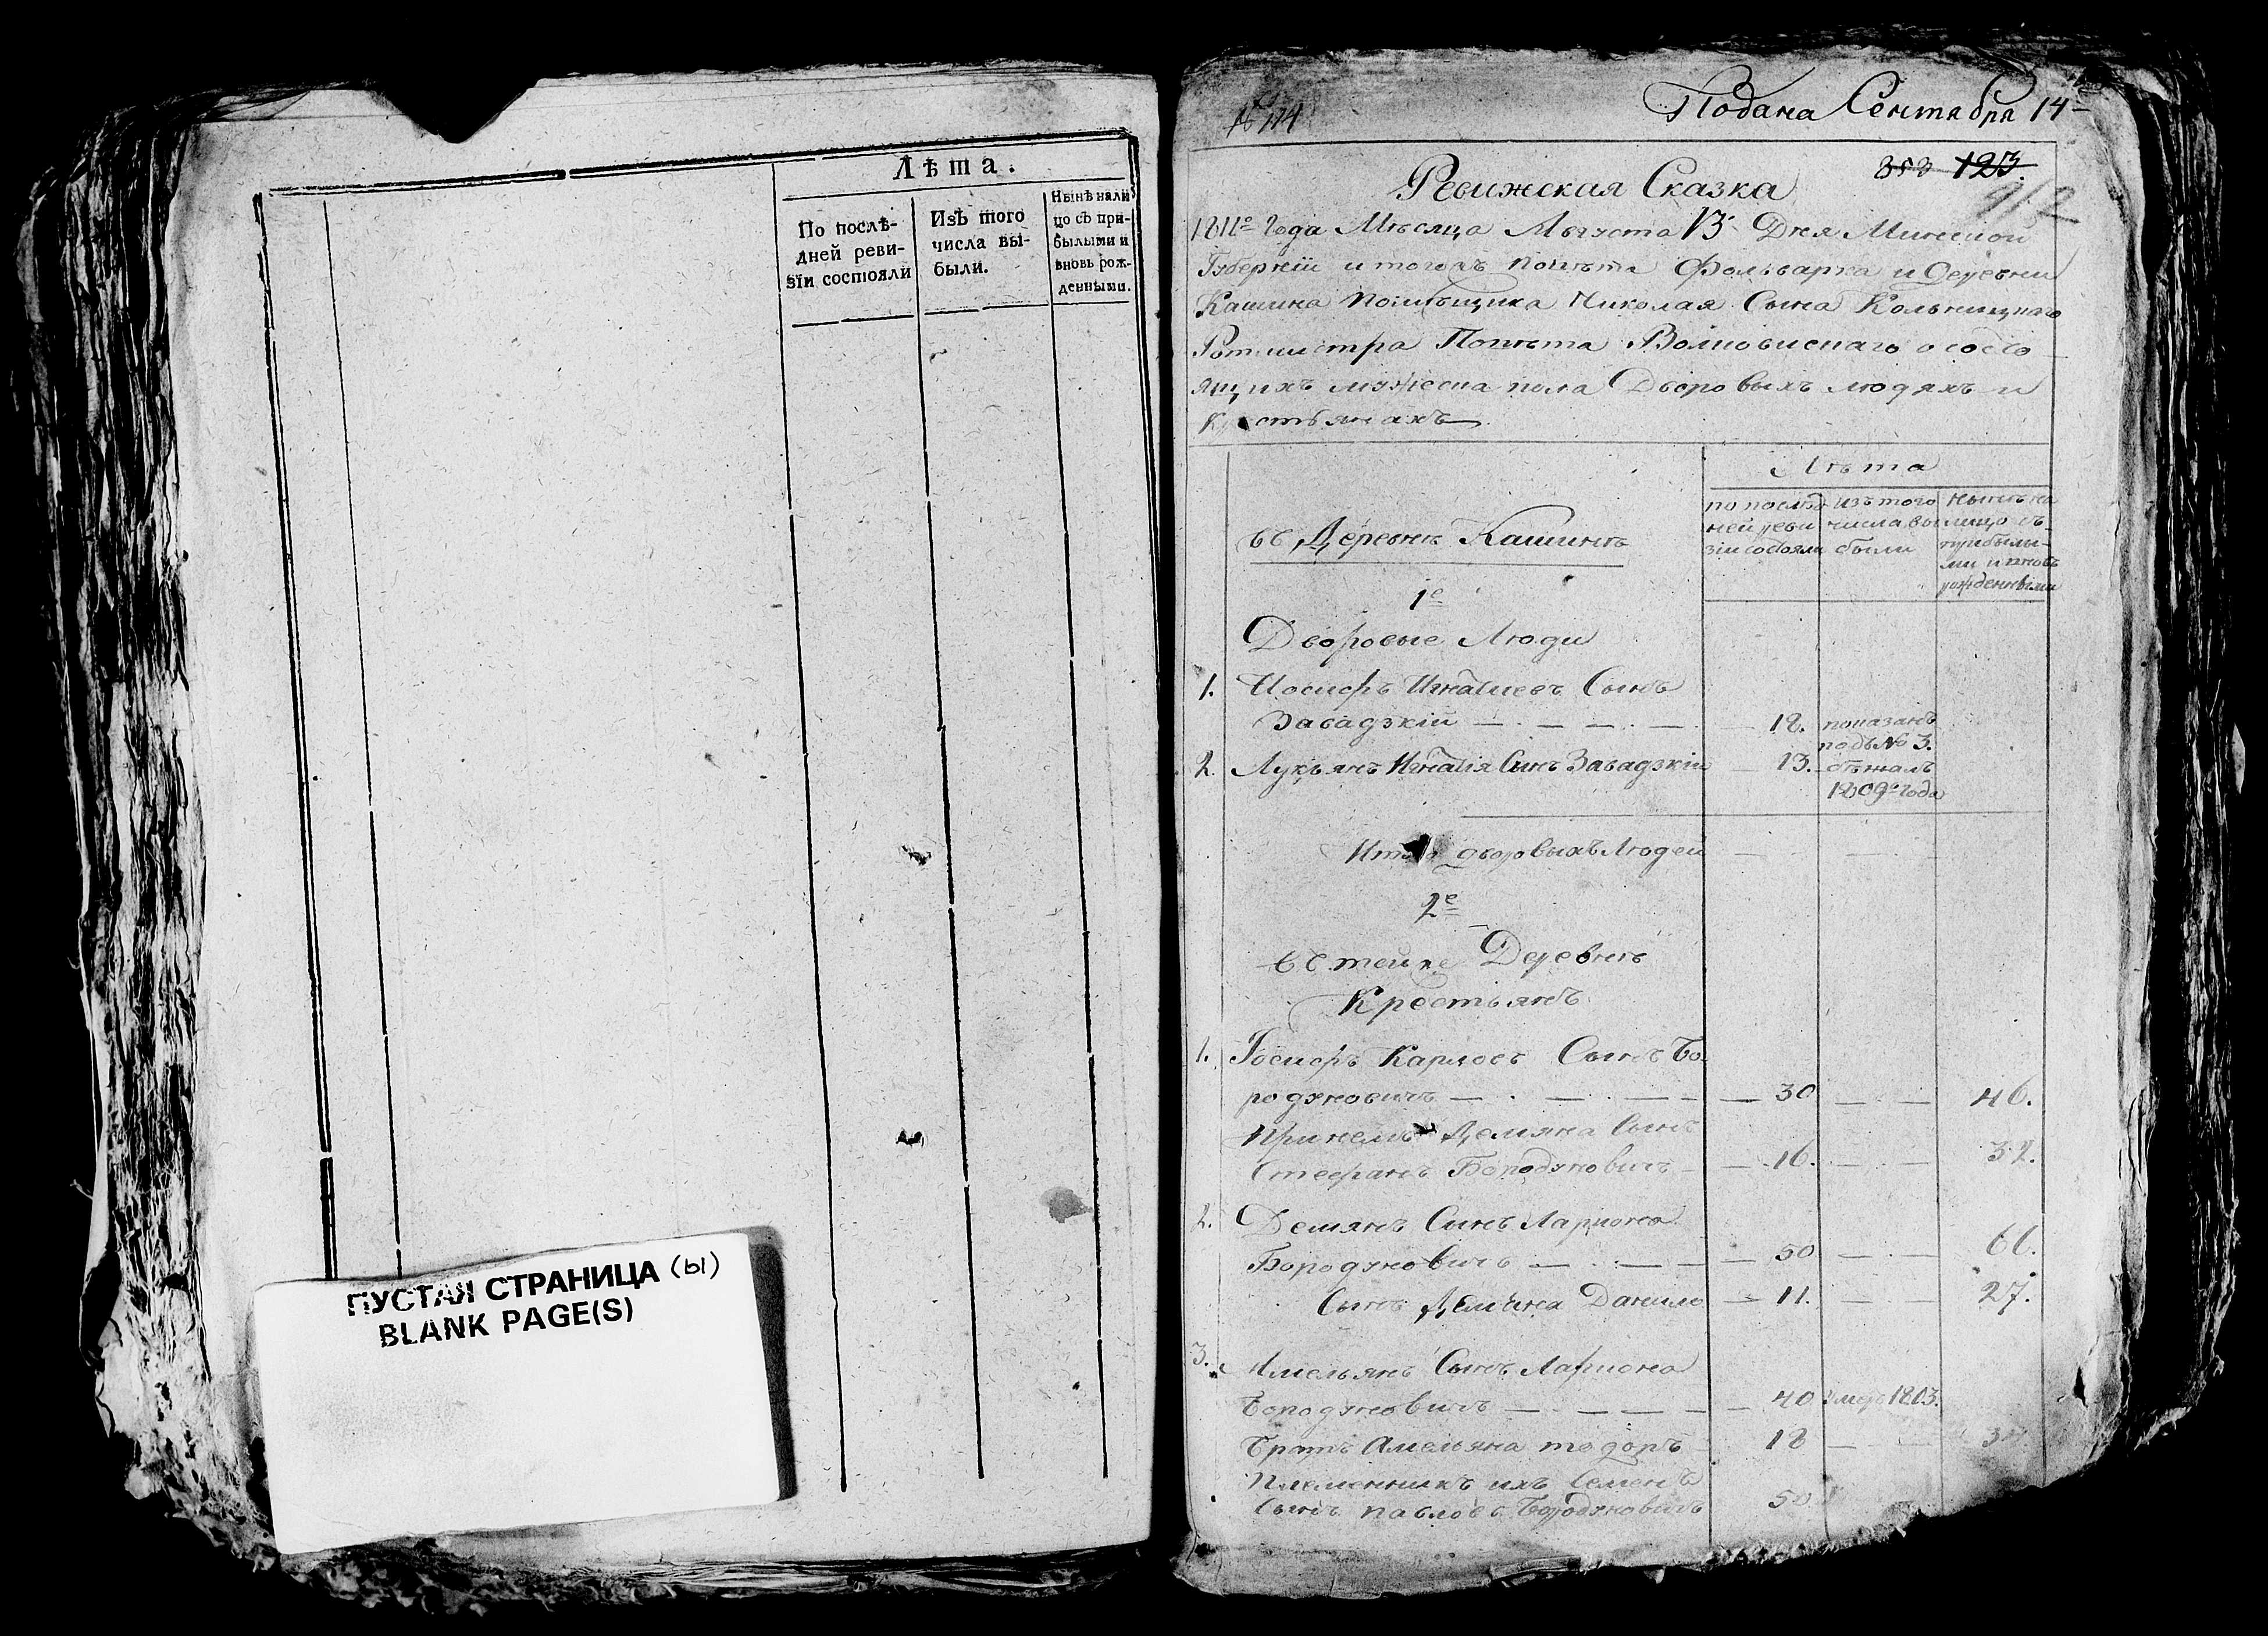 Лѣта.
По послѣ-
дней реви-
зїи состояли
Изъ того
числа вы-
были.
Нынѣ нали
цо съ при-
былыми и
вновь рож-
денными.
ПУСТАЯ СТРАНИЦА (ы)
BLANK PAGE(S)
№ 174
Подана Сентября 14
353 123
Ревижская Сказка
1811го Года Мѣсяца Августа 13 Дня Минской
Губернїи и тогожъ Повѣта Фольварка и Деревни
Кашина Помѣщика Николая Сына
Ротмистра Повѣта о состо
ящихъ мужеска пола Дворовыхъ людяхъ и
Крестьянахъ
Лѣта
по послѣд
ней реви
зїи состояли
изъ того
числа вы
были
нынѣ на
лицо съ
прибылы-
ми и вновь
рожденными
въ Деревнѣ Кашинѣ
1е
Дворовые Люди
1. Иосифъ Игнатиевъ Сынъ
Завадзкїй 18. показанъ
подъ № 3.
2. Лукьянъ Игнатїя Сынъ Завадзкїй 13. бѣжалъ
1809 года
Итого дворовыхъ Людей
2е
въ тейже Деревнѣ
Крестьянъ
1. Іосифъ Карловъ Сынъ Бо
родзновичъ 30 46.
Демяна Сынъ
Стефанъ Бородзновичъ 16. 32.
2. Демянъ Синъ Лариона
Бородзновичъ 50 66.
Сынъ Демяна Данило 11. 27.
3. Амельянъ Сынъ Лариона
Бородзновичъ 40 умеръ 1803.
Братъ Амельяна тодоръ 18 34
Племенникъ ихъ Семенъ
Сынъ Павловъ Бородзновичъ 50